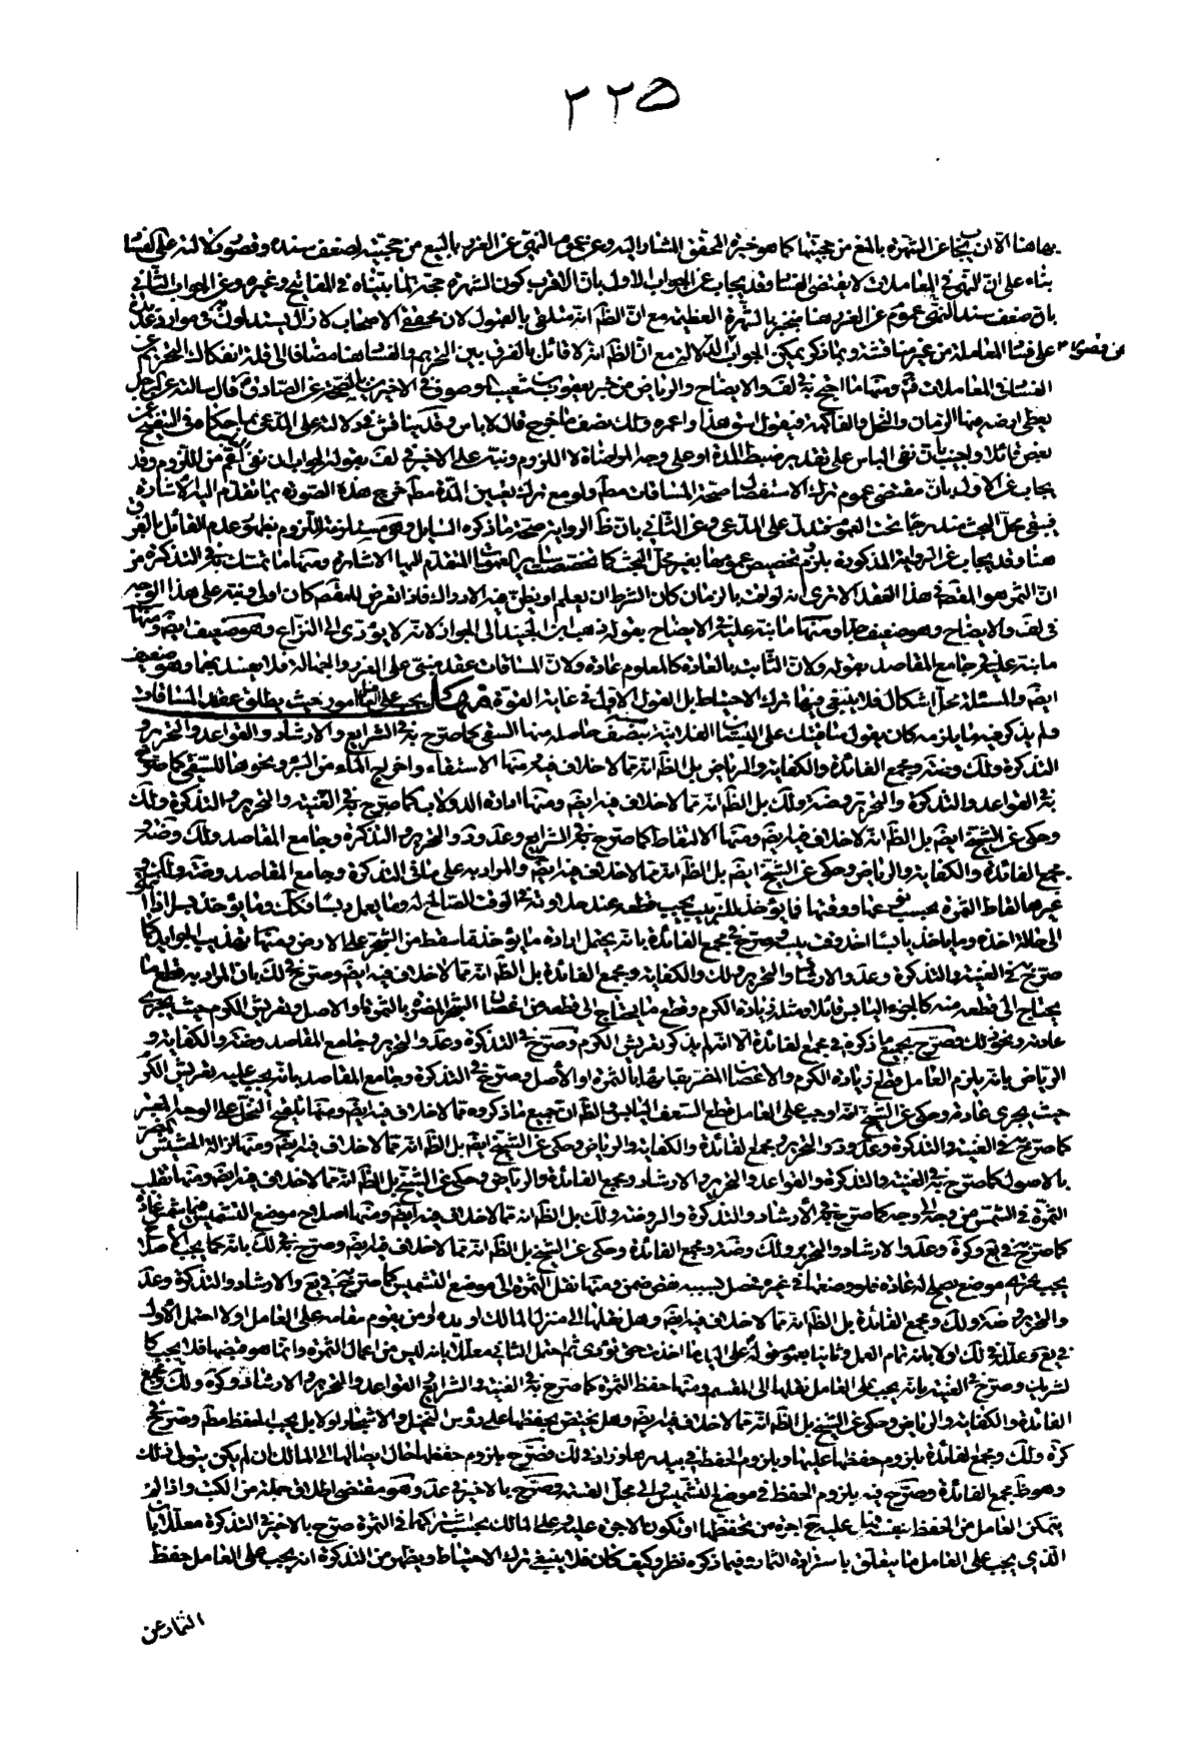 ٢٢٥
بها هنا الا ان يجاب عن الشهرة بالمنع من حجيتها كما هو خيرة المحقق المشار اليه وعن عموم النهى عن الغرر بالمنع من حجيته لضعف سنده وقصور دلالته على الفساد
بناء على ان النهى فى المعاملات لا يقتضى الفساد وقد يجاب عن الجواب الاول بان الاقرب كون الشهرة حجة كما بيناه فى المفاتيح وغيره وعن الجواب الثانى
بان ضعف سند النهى عموم عن الغرر هنا منجبر بالشهرة العظيمة مع ان الظ انه متلقى بالقبول لان محققى الاصحاب لا زال يستدلون فى موارد
على فساد المعاملة من غير مناقشة وبما ذكر يمكن الجواب الدلالة مع ان الظ انه لا قائل بالفرق بين التحريم والفساد هنا مضافا الى قلة انفكاك التحريم عن
الفساد فى المعاملات فتم ومنها ما احتج به فى لف والايضاح والرياض من خبر يعقوب بن شعيب وصوف فى الاخير عن الصادق ع قال سالته عن الرجل
يعطى ارضه فيها الرمان والنخل والفاكهة فيقول اسق هذا واعمره ولك نصف ما خرج قال لا باس وقد يناقش فى دلالته على المدعى
بعض قائلا واجيب بان نفى الباس على تقدير ضبط المدة او على وجه المراضاة لا اللزوم ونبه على الاخير فى لف بقوله الجواب ان نفى اعم من اللزوم وقد
يجاب عن الاول بان مقتضى عموم ترك الاستفصال صحة المساقات مط ولو مع ترك تعيين المدة مط خرج هذه الصورة بما تقدم اليه الاشارة
فيبقى محل البحث مندرجا تحت العموم فيدل على المدعى وعن الثانى بان ظ الرواية صحة ما ذكره السائل وهى مستلزمة للزوم بظهور عدم القائل بالفرق
هنا وقد يجاب عن الرواية المذكورة بلزوم تخصيص عمومها بغير محل البحث كما تخصصت به العمومات المتقدم اليها الاشارة ومنها ما تمسك به فى التذكرة من
ان الثمر هو المقصود فى هذا العقد الا ترى انه لو لفت بالزمان كان الشرط ان يعلم او يظن فيه الادراك فاذا تعرض للمقصم كان اولى ونبه على هذا الوجه
فى لف والايضاح وهو ضعيف جدا ومنها ما نبه عليه فى الايضاح بقوله ذهب ابن الجنيد الى الجواز لانه لا يؤدى الى النزاع وهو ضعيف ايضا ومنها
ما نبه عليه فى جامع المقاصد بقوله ولان الثابت بالعادة كالمعلوم عادة ولان المساقات عقد مبنى على الغرر والجهالة فلا يفسد بهما وهو ضعيف
ايضا والمسئلة محل اشكال فلا ينبغى فيها ترك الاحتياط بل القول الاول فى غاية القوة منهل يجب على العامل امور حيث يطلق عقد المساقات
ولم يذكر فيه ما يلزمه كان يقول ساقيتك على البستان الفلانية بنصف حاصله منها السقى كما صرح به فى الشرايع والارشاد والقواعد والتحرير و
التذكرة ولك وضه ومجمع الفائدة والكفاية والرياض بل الظ انه مما لا خلاف فيه ومنها الاستقاء واخراج الماء من البئر ونحوها للسقى كما صرح
به فى القواعد والتذكرة والتحرير وضه ولك بل الظ انه مما لا خلاف فيه ايضا ومنها ادارة الدولاب كما صرح به فى الغنية والتحرير والتذكرة ولك
وحكى عن الشيخ ايضا بل الظ انه مما لا خلاف فيه ايضا ومنها الالتقاط كما صرح به فى الشرايع وعد ود والتحرير والتذكرة وجامع المقاصد ولك وضه و
مجمع الفائدة والكفاية والرياض وحكى عن الشيخ ايضا بل الظ انه مما لا خلاف فيه ايضا والمراد به على ما فى التذكرة وجامع المقاصد وضه ولك و
غيرها لقاط الثمرة بحسب نوعها ووقتها فما يؤخذ للزبيب يجب قطعه عند حلاوته فى الوقت الصالح له وما يعمل دبسا فكك وما يؤخذ بسرا اذا انتهى
الى حالة اخذه وما ياخذ يابسا اخذ وقت يبسه وصرح فى مجمع الفائدة بانه يحتمل ارادة ما يؤخذ مما سقط من الشجر على الارض ومنها تهذيب الجرايد كما
صرح به فى الغنية والتذكرة وعد والارشاد والتحرير ولك والكفاية ومجمع الفائدة بل الظ انه مما لا خلاف فيه ايضا وصرح فى لك بان المراد به قطع ما
يحتاج الى قطعه منه كالجزء اليابس قائلا ومثله زيادة الكرم وقطع ما يحتاج الى قطعه من اغصان الشجر المضر بالثمرة او الاصل وتعريش الكرم حيث يجرى
عادته ونحو ذلك وصرح بجميع ما ذكره فى مجمع الفائدة الا انه لم يذكر تعريش الكرم وصرح فى التذكرة وعد والتحرير وجامع المقاصد وضه والكفاية و
الرياض بانه يلزم العامل قطع زيادة الكرم والاغصان المضر بقاؤها بالثمرة او الاصل وصرح فى التذكرة وجامع المقاصد بانه يجب عليه تعريش الكرم
حيث يجرى عادة وحكى عن الشيخ انه اوجب على العامل قطع السعف اليابس والظ ان جميع ما ذكروه مما لا خلاف فيه ايضا ومنها تلقيح النخل على الوجه المعتبر
كما صرح به فى الغنية والتذكرة وعد ود والتحرير ومجمع الفائدة والكفاية والرياض وحكى عن الشيخ ايضا بل الظ انه مما لا خلاف فيه ايضا ومنها ازالة الحشيش المضر
بالاصول كما صرح به فى الغنية والتذكرة والقواعد والتحرير والارشاد ومجمع الفائدة والرياض وحكى عن الشيخ بل الظ انه مما لا خلاف فيه ايضا ومنها تقليب
الثمرة فى الشمس من وجه الى وجه كما صرح به فى الارشاد والتذكرة والروضة ولك بل الظ انه مما لا خلاف فيه ايضا ومنها اصلاح موضع التشميس فيما يشمس عادة
كما صرح به فى يع وكرة وعد والارشاد والتحرير ولك وضه ومجمع الفائدة وحكى عن الشيخ بل الظ انه مما لا خلاف فيه ايضا وصرح فى لك بانه كما يجب الاصلاح
يجب تحريه موضع يصلح له عادة فلو وضعها فى غيره فحصل بسببه نقص ضمن ومنها نقل الثمرة الى موضع التشميس كما صرح به فى يع والارشاد والتذكرة وعد
والتحرير وضه ولك ومجمع الفائدة بل الظ انه مما لا خلاف فيه ايضا وهل نقلها الى منزل المالك او يده او من يقوم مقامه على العامل او لا احتمل الاول
فى يع وعلله فى لك اولا بانه تمام العمل وثانيا بعموم قوله على اليد ما اخذت حتى تؤدى ثم احتمل الثانى معللا بانه ليس من اعمال الثمرة وانما هو قبضها فلا يجب كا
لشريك وصرح فى الغنية بانه يجب على العامل نقلها الى المقسم ومنها حفظ الثمرة كما صرح به فى الغنية والشرايع القواعد والتحرير والارشاد وكرة ولك ومجمع
الفائدة والكفاية والرياض وحكى عن الشيخ بل الظ انه مما لا خلاف فيه ايضا وهل يختص بحفظها على رؤس النخيل والاشجار او لا بل يجب الحفظ مط وصرح فى
كرة ولك ومجمع الفائدة بلزوم حفظها عليها وبلزوم الحفظ فى بيدرها وزاد فى لك فصرح بلزوم حفظها حال ايصالها الى المالك ان لم يكن يتولى ذلك
وهو ظ مجمع الفائدة وصرح فيه بلزوم الحفظ فى موضع التشميس والى محل القسمة وصرح بالاخير فى عد وهو مقتضى اطلاق جملة من الكتب واذا لم
يتمكن العامل من الحفظ بنفسه فهل عليه ح اجرة من يحفظها او تكون الاجرة عليه وعلى المالك بحسب شراكهما فى الثمرة صرح بالاخير فى التذكرة معللا بان
الذى يجب على العامل ما يتعلق باستزادة الثمار وفيما ذكره نظر وكيف كان فلا ينبغى ترك الاحتياط ويظهر من التذكرة انه يجب على العامل حفظ
الثمار عن